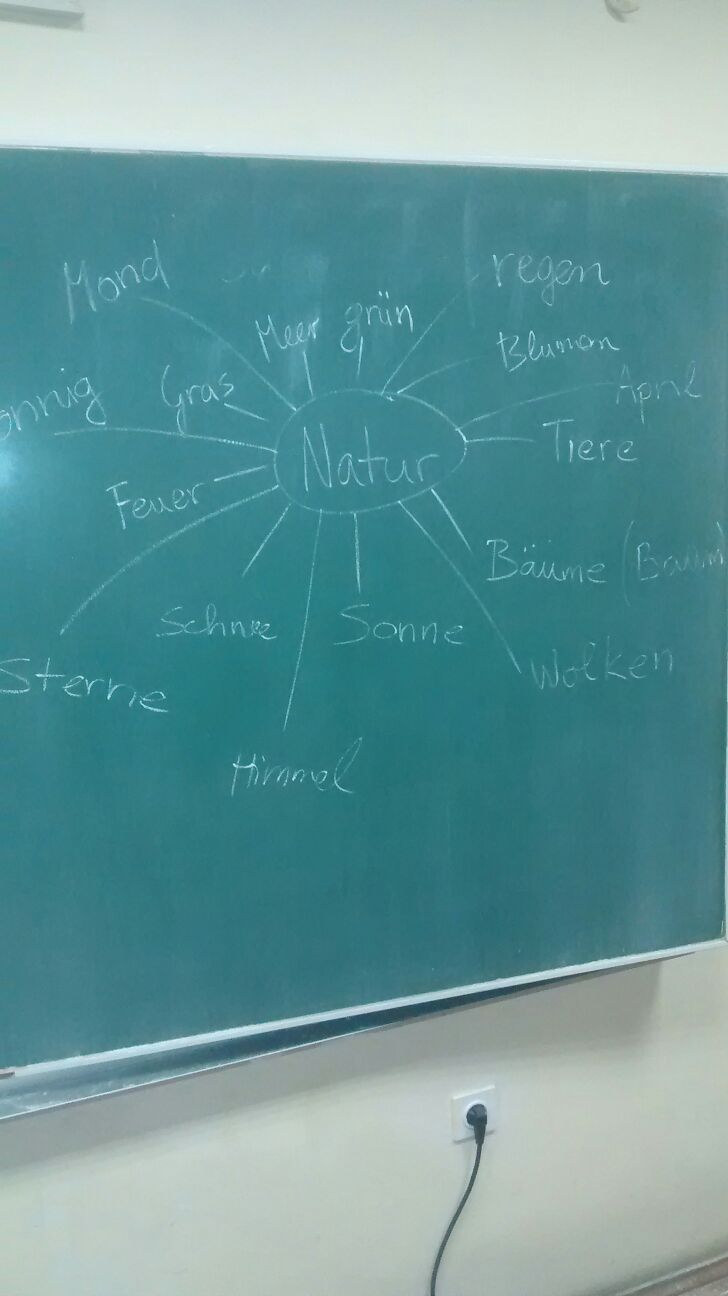 Mond
regen
Meer grün
Blumen
onnig
Gras
April
Natur
Tiere
Feuer
Bäume (Baum)
Schnee
Sonne
Wolken
Sterne
Himmel